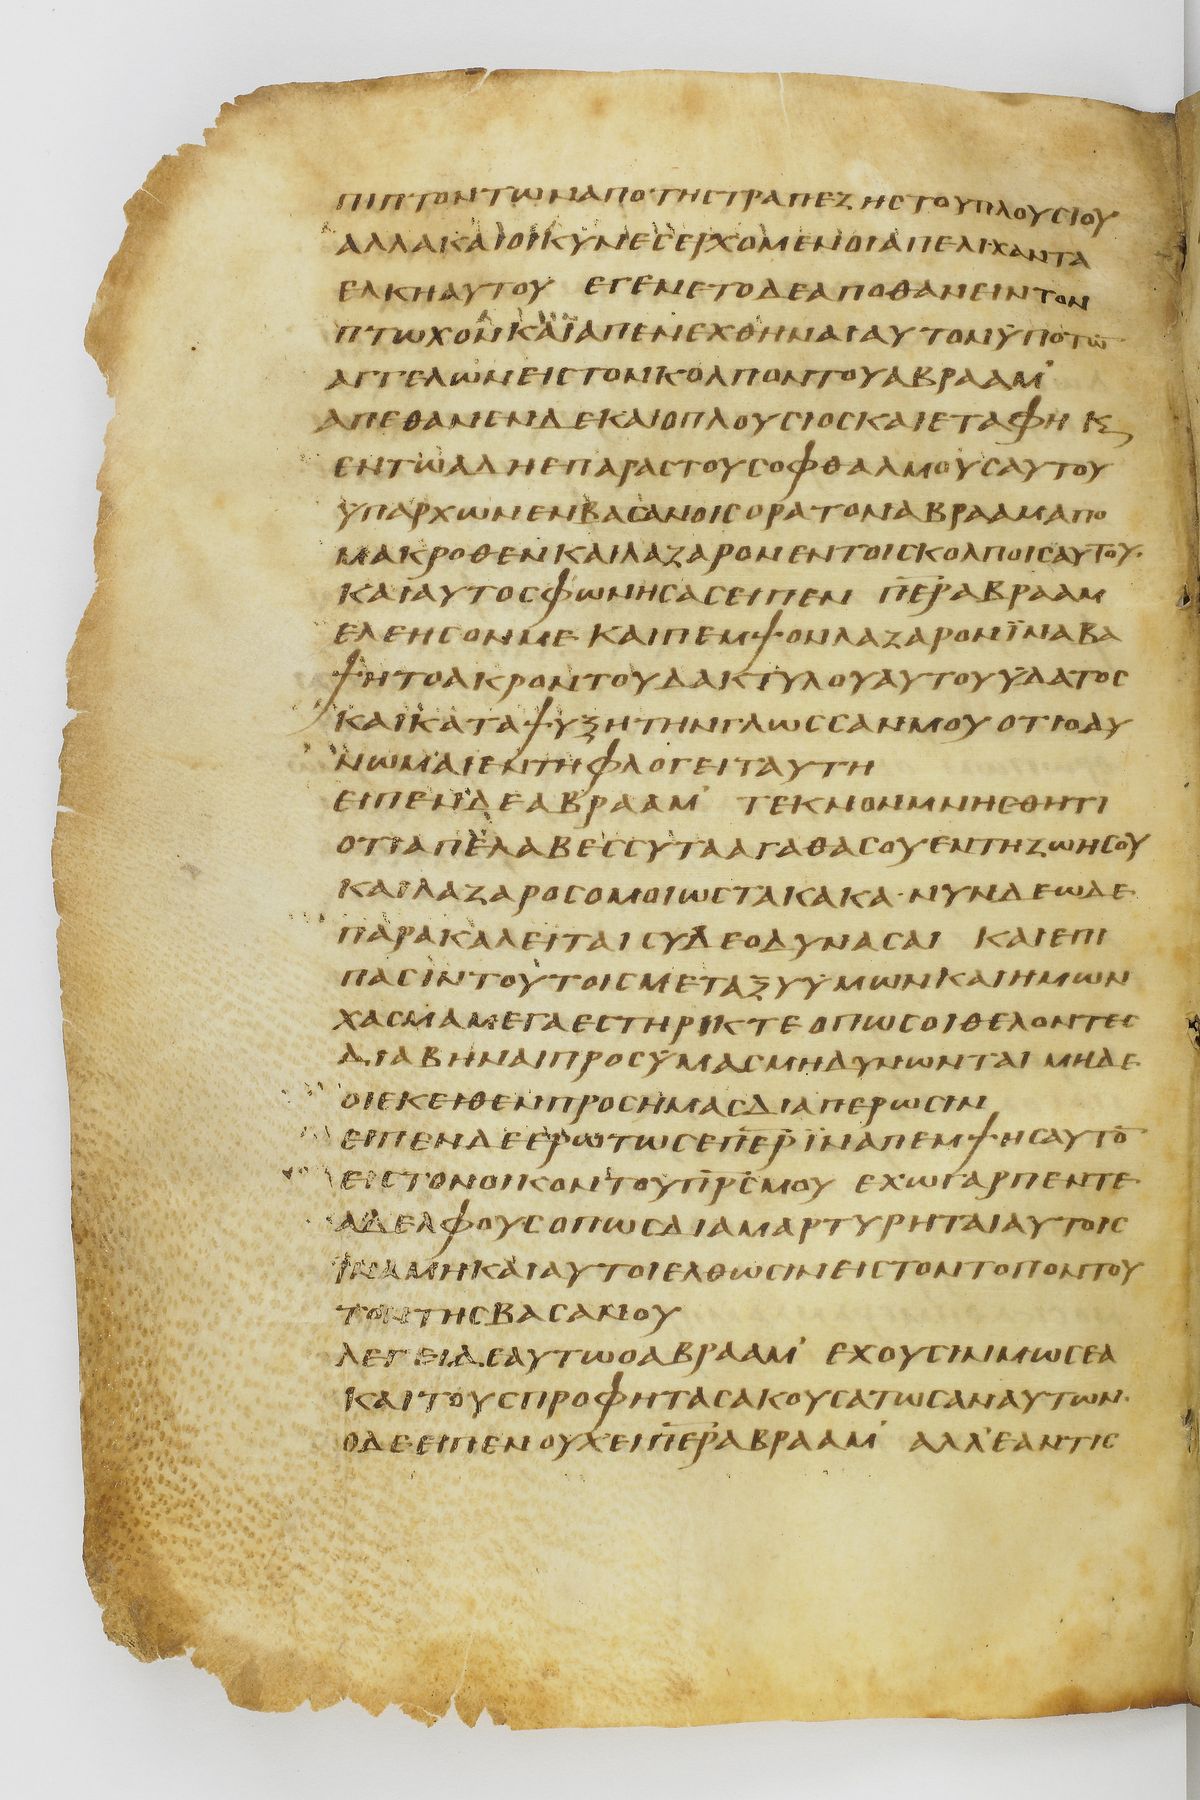 ΠΙΠΤΟΝΤΩΝΑΠΟΤΗΣΤΡΑΠΕΖΗΣΤΟΥΠΛΟΥΣΙΟΥ
ΑΛΛΑΚΑΙΟΙΚΥΝΕΣΕΡΧΟΜΕΝΟΙΑΠΕΛΙΧΑΝΤΑ
ΕΛΚΗΑΥΤΟΥ ΕΓΕΝΕΤΟΔΕΑΠΟΘΑΝΕΙΝΤΟΝ
ΠΤΩΧΟΝΚΑΙΑΠΕΝΕΧΘΗΝΑΙΑΥΤΟΝΫΠΟΤΩ̅
ΑΓΓΕΛΩΝΕΙΣΤΟΝΚΟΛΠΟΝΤΟΥΑΒΡΑΑΜ᾽
ΑΠΕΘΑΝΕΝΔΕΚΑΙΟΠΛΟΥΣΙΟΣΚΑΙΕΤΑΦΗΚ̣
ΕΝΤΩΑΔΗΕΠΑΡΑΣΤΟΥΣΟΦΘΑΛΜΟΥΣΑΥΤΟΥ
ΥΠΑΡΧΩΝΕΝΒΑΣΑΝΟΙΣΟΡΑΤΟΝΑΒΡΑΑΜΑΠΟ
ΜΑΚΡΟΘΕΝΚΑΙΛΑΖΑΡΟΝΕΝΤΟΙΣΚΟΛΠΟΙΣΑΥΤΟΥ·
ΚΑΙΑΥΤΟΣΦΩΝΗΣΑΣΕΙΠΕΝ Π̅Ε̅Ρ̅ΑΒΡΑΑΜ
ΕΛΕΗΣΟΝΜΕ ΚΑΙΠΕΜΨΟΝΛΑΖΑΡΟΝΪΝΑΒΑ
ΨΗΤΟΑΚΡΟΝΤΟΥΔΑΚΤΥΛΟΥΑΥΤΟΥΥΔΑΤΟΣ
ΚΑΙΚΑΤΑΨΥΞΗΤΗΝΓΛΩΣΣΑΝΜΟΥ ΟΤΙΟΔΥ
ΝΩΜΑΙΕΝΤΗΦΛΟΓΕΙΤΑΥΤΗ
ΕΙΠΕΝΔΕΑΒΡΑΑΜ᾽ ΤΕΚΝΟΝΜΝΗΣΘΗΤΙ
ΟΤΙΑΠΕΛΑΒΕΣΣΥΤΑΑΓΑΘΑΣΟΥΕΝΤΗΖΩΗΣΟΥ
ΚΑΙΛΑΖΑΡΟΣΟΜΟΙΩΣΤΑΚΑΚΑ·ΝΥΝΔΕΩΔΕ
ΠΑΡΑΚΑΛΕΙΤΑΙΣΥΔΕΟΔΥΝΑΣΑΙ ΚΑΙΕΠΙ
ΠΑΣΙΝΤΟΥΤΟΙΣΜΕΤΑΞΥΫΜΩΝΚΑΙΗΜΩΝ
ΧΑΣΜΑΜΕΓΑΕΣΤΗΡΙΚΤΕ ΟΠΩΣΟΙΘΕΛΟΝΤΕΣ
ΔΙΑΒΗΝΑΙΠΡΟΣΫΜΑΣΜΗΔΥΝΩΝΤΑΙ ΜΗΔΕ
ΟΙΕΚΕΙΘΕΝΠΡΟΣΗΜΑΣΔΙΑΠΕΡΩΣΙΝ
ΕΙΠΕΝΔΕΕΡΩΤΩΣΕΠ̅Ε̅Ρ̅ΪΝΑΠΕΜΨΗΣΑΥΤΟ̅
ΕΙΣΤΟΝΟΙΚΟΝΤΟΥΠ̅Ρ̅Σ̅ΜΟΥ ΕΧΩΓΑΡΠΕΝΤΕ
ΑΔΕΛΦΟΥΣΟΠΩΣΔΙΑΜΑΡΤΥΡΗΤΑΙΑΥΤΟΙΣ
ΪΝΑΜΗΚΑΙΑΥΤΟΙΕΛΘΩΣΙΝΕΙΣΤΟΝΤΟΠΟΝΤΟΥ
ΤΟΝΤΗΣΒΑΣΑΝΟΥ
ΛΕΓΕΙΔΕΑΥΤΩΟΑΒΡΑΑΜ᾽ ΕΧΟΥΣΙΝΜΩΣΕΑ
ΚΑΙΤΟΥΣΠΡΟΦΗΤΑΣΑΚΟΥΣΑΤΩΣΑΝΑΥΤΩΝ·
ΟΔΕΕΙΠΕΝΟΥΧΕΙΠ̅Ε̅Ρ̅ΑΒΡΑΑΜ᾽ ΑΛΛ᾽ΕΑΝΤΙΣ